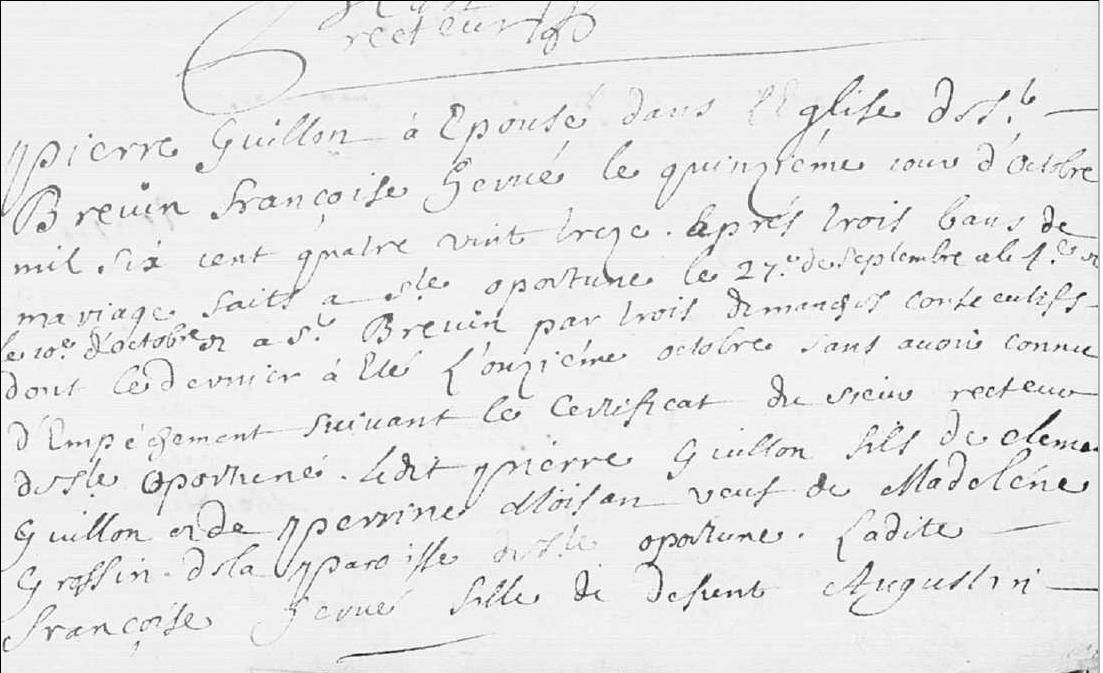 recteur
pierre Guillon à Epousé dans l'Eglise de st.
Brevin françoise herué le quinziéme iour d'Octobre
mil six cent quatre vint treze. Aprés trois bans de
mariage faits a ste oportune le 27.e de septembre le 4.e et
le 10e d'octobre et a st. Brevin par trois dimanches consecutifs
dont le dernier à Eté l'onziéme octobre sans auoir connu
d'Empéchement suiuant le Certificat du sieur recteur
de ste oportune. Ledit pierre Guillon fils de cleme
Guillon et de perrine Moisan veuf de Madeléne
Grossin. de la paroisse de ste oportune. Ladite
françoise herué fille de defunt Augustin